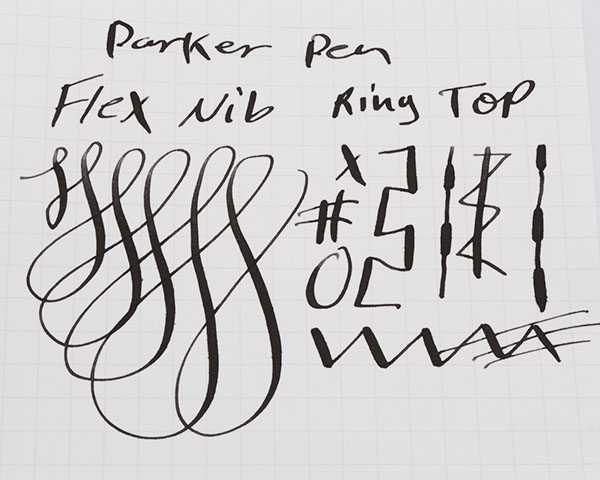 Parker Pen
Flex Nib Ring Top
X
#
O